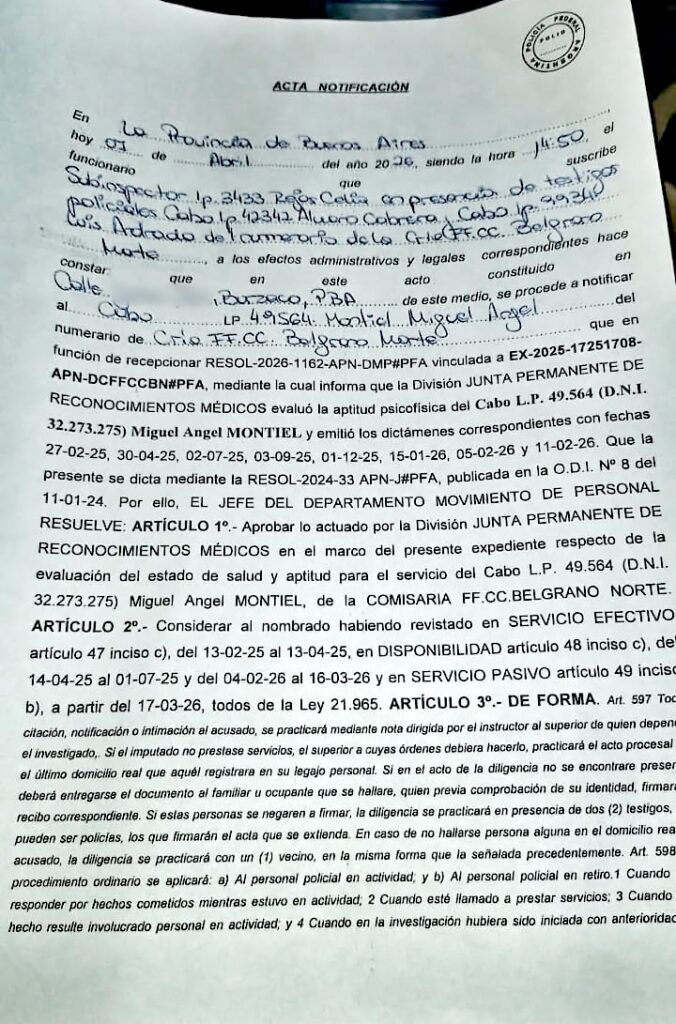 POLICÍA FEDERAL ARGENTINA
FOLIO
ACTA NOTIFICACIÓN
En La Provincia de Buenos Aires
hoy 01 de Abril del año 2026, siendo la hora 14:50, el
funcionario que suscribe
Subinspector Lp. 3433 Rojas Celia en presencia de testigos
policiales Cabo Lp. 42342 Alvaro Cabrera y Cabo Lp. 99340
Luis Andrada de numerario de la Cria FF.CC. Belgrano
Norte, a los efectos administrativos y legales correspondientes hace
constar que en este acto constituido en
Calle , Burzaco, PBA de este medio, se procede a notificar
al Cabo LP 49564 Montiel Miguel Angel del
numerario de Cria FF.CC. Belgrano Norte que en
función de recepcionar RESOL-2026-1162-APN-DMP#PFA vinculada a EX-2025-17251708-
APN-DCFFCCBN#PFA, mediante la cual informa que la División JUNTA PERMANENTE DE
RECONOCIMIENTOS MÉDICOS evaluó la aptitud psicofísica del Cabo L.P. 49.564 (D.N.I.
32.273.275) Miguel Angel MONTIEL y emitió los dictámenes correspondientes con fechas
27-02-25, 30-04-25, 02-07-25, 03-09-25, 01-12-25, 15-01-26, 05-02-26 y 11-02-26. Que la
presente se dicta mediante la RESOL-2024-33 APN-J#PFA, publicada en la O.D.I. Nº 8 del
11-01-24. Por ello, EL JEFE DEL DEPARTAMENTO MOVIMIENTO DE PERSONAL
RESUELVE: ARTÍCULO 1º.- Aprobar lo actuado por la División JUNTA PERMANENTE DE
RECONOCIMIENTOS MÉDICOS en el marco del presente expediente respecto de la
evaluación del estado de salud y aptitud para el servicio del Cabo L.P. 49.564 (D.N.I.
32.273.275) Miguel Angel MONTIEL, de la COMISARIA FF.CC.BELGRANO NORTE.
ARTÍCULO 2º.- Considerar al nombrado habiendo revistado en SERVICIO EFECTIVO
artículo 47 inciso c), del 13-02-25 al 13-04-25, en DISPONIBILIDAD artículo 48 inciso c), de
14-04-25 al 01-07-25 y del 04-02-26 al 16-03-26 y en SERVICIO PASIVO artículo 49 inciso
b), a partir del 17-03-26, todos de la Ley 21.965. ARTÍCULO 3º.- DE FORMA. Art. 597 Tod
citación, notificación o intimación al acusado, se practicará mediante nota dirigida por el instructor al superior de quien depen
el investigado,. Si el imputado no prestase servicios, el superior a cuyas órdenes debiera hacerlo, practicará el acto procesal
el último domicilio real que aquél registrara en su legajo personal. Si en el acto de la diligencia no se encontrare presen
deberá entregarse el documento al familiar u ocupante que se hallare, quien previa comprobación de su identidad, firmará
recibo correspondiente. Si estas personas se negaren a firmar, la diligencia se practicará en presencia de dos (2) testigos,
pueden ser policías, los que firmarán el acta que se extienda. En caso de no hallarse persona alguna en el domicilio rea
acusado, la diligencia se practicará con un (1) vecino, en la misma forma que la señalada precedentemente. Art. 598
procedimiento ordinario se aplicará: a) Al personal policial en actividad; y b) Al personal policial en retiro.1 Cuando
responder por hechos cometidos mientras estuvo en actividad; 2 Cuando esté llamado a prestar servicios; 3 Cuando
hecho resulte involucrado personal en actividad; y 4 Cuando en la investigación hubiera sido iniciada con anterioridad